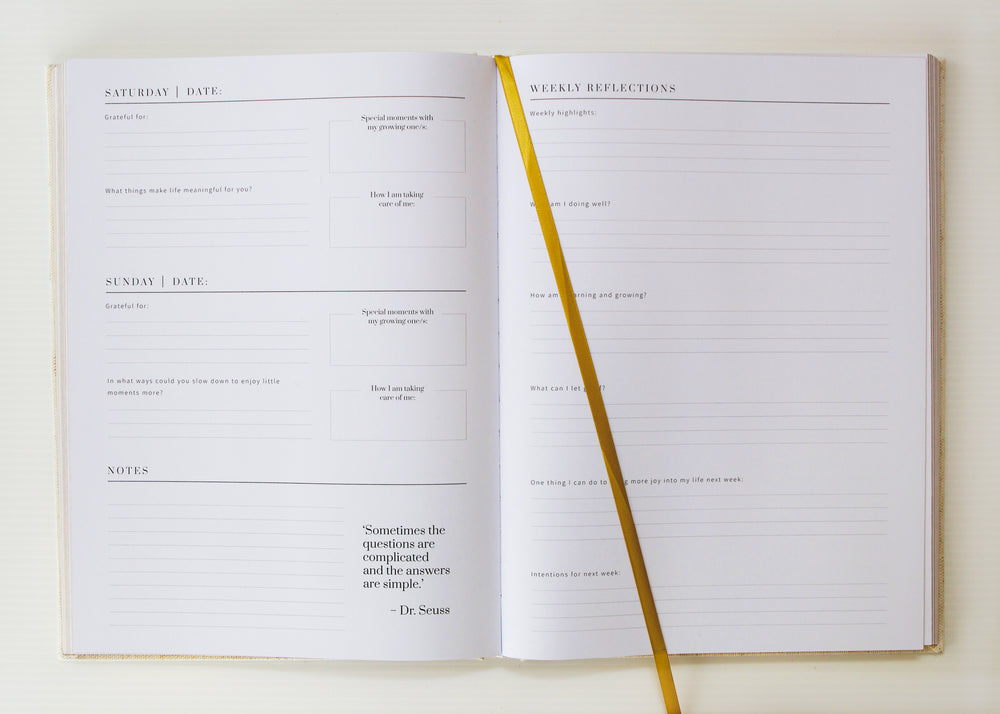 SATURDAY | DATE:
Grateful for:
Special moments with
my growing one/s:
What things make life meaningful for you?
How I am taking
care of me:
SUNDAY | DATE:
Grateful for:
Special moments with
my growing one/s:
In what ways could you slow down to enjoy little
moments more?
How I am taking
care of me:
NOTES
'Sometimes the
questions are
complicated
and the answers
are simple.'
– Dr. Seuss
WEEKLY REFLECTIONS
Weekly highlights:
am I doing well?
How am and growing?
What can I let
One thing I can do to more joy into my life next week:
Intentions for next week: